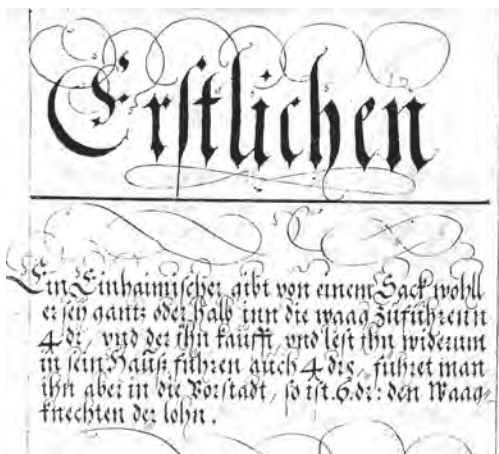 Erstlichen
Ein Einhaimischer gibt von einem Sack wohll
er sey gantz oder halb inn die waag Zuführenn
4 dr, vnd der ihn kaufft, vnd lest ihn widerum
in sein Hauß führen auch 4 drs, führet man
ihn aber in die Vorstadt, so ist .6. dr: den Waag¬
knechten der lohn.